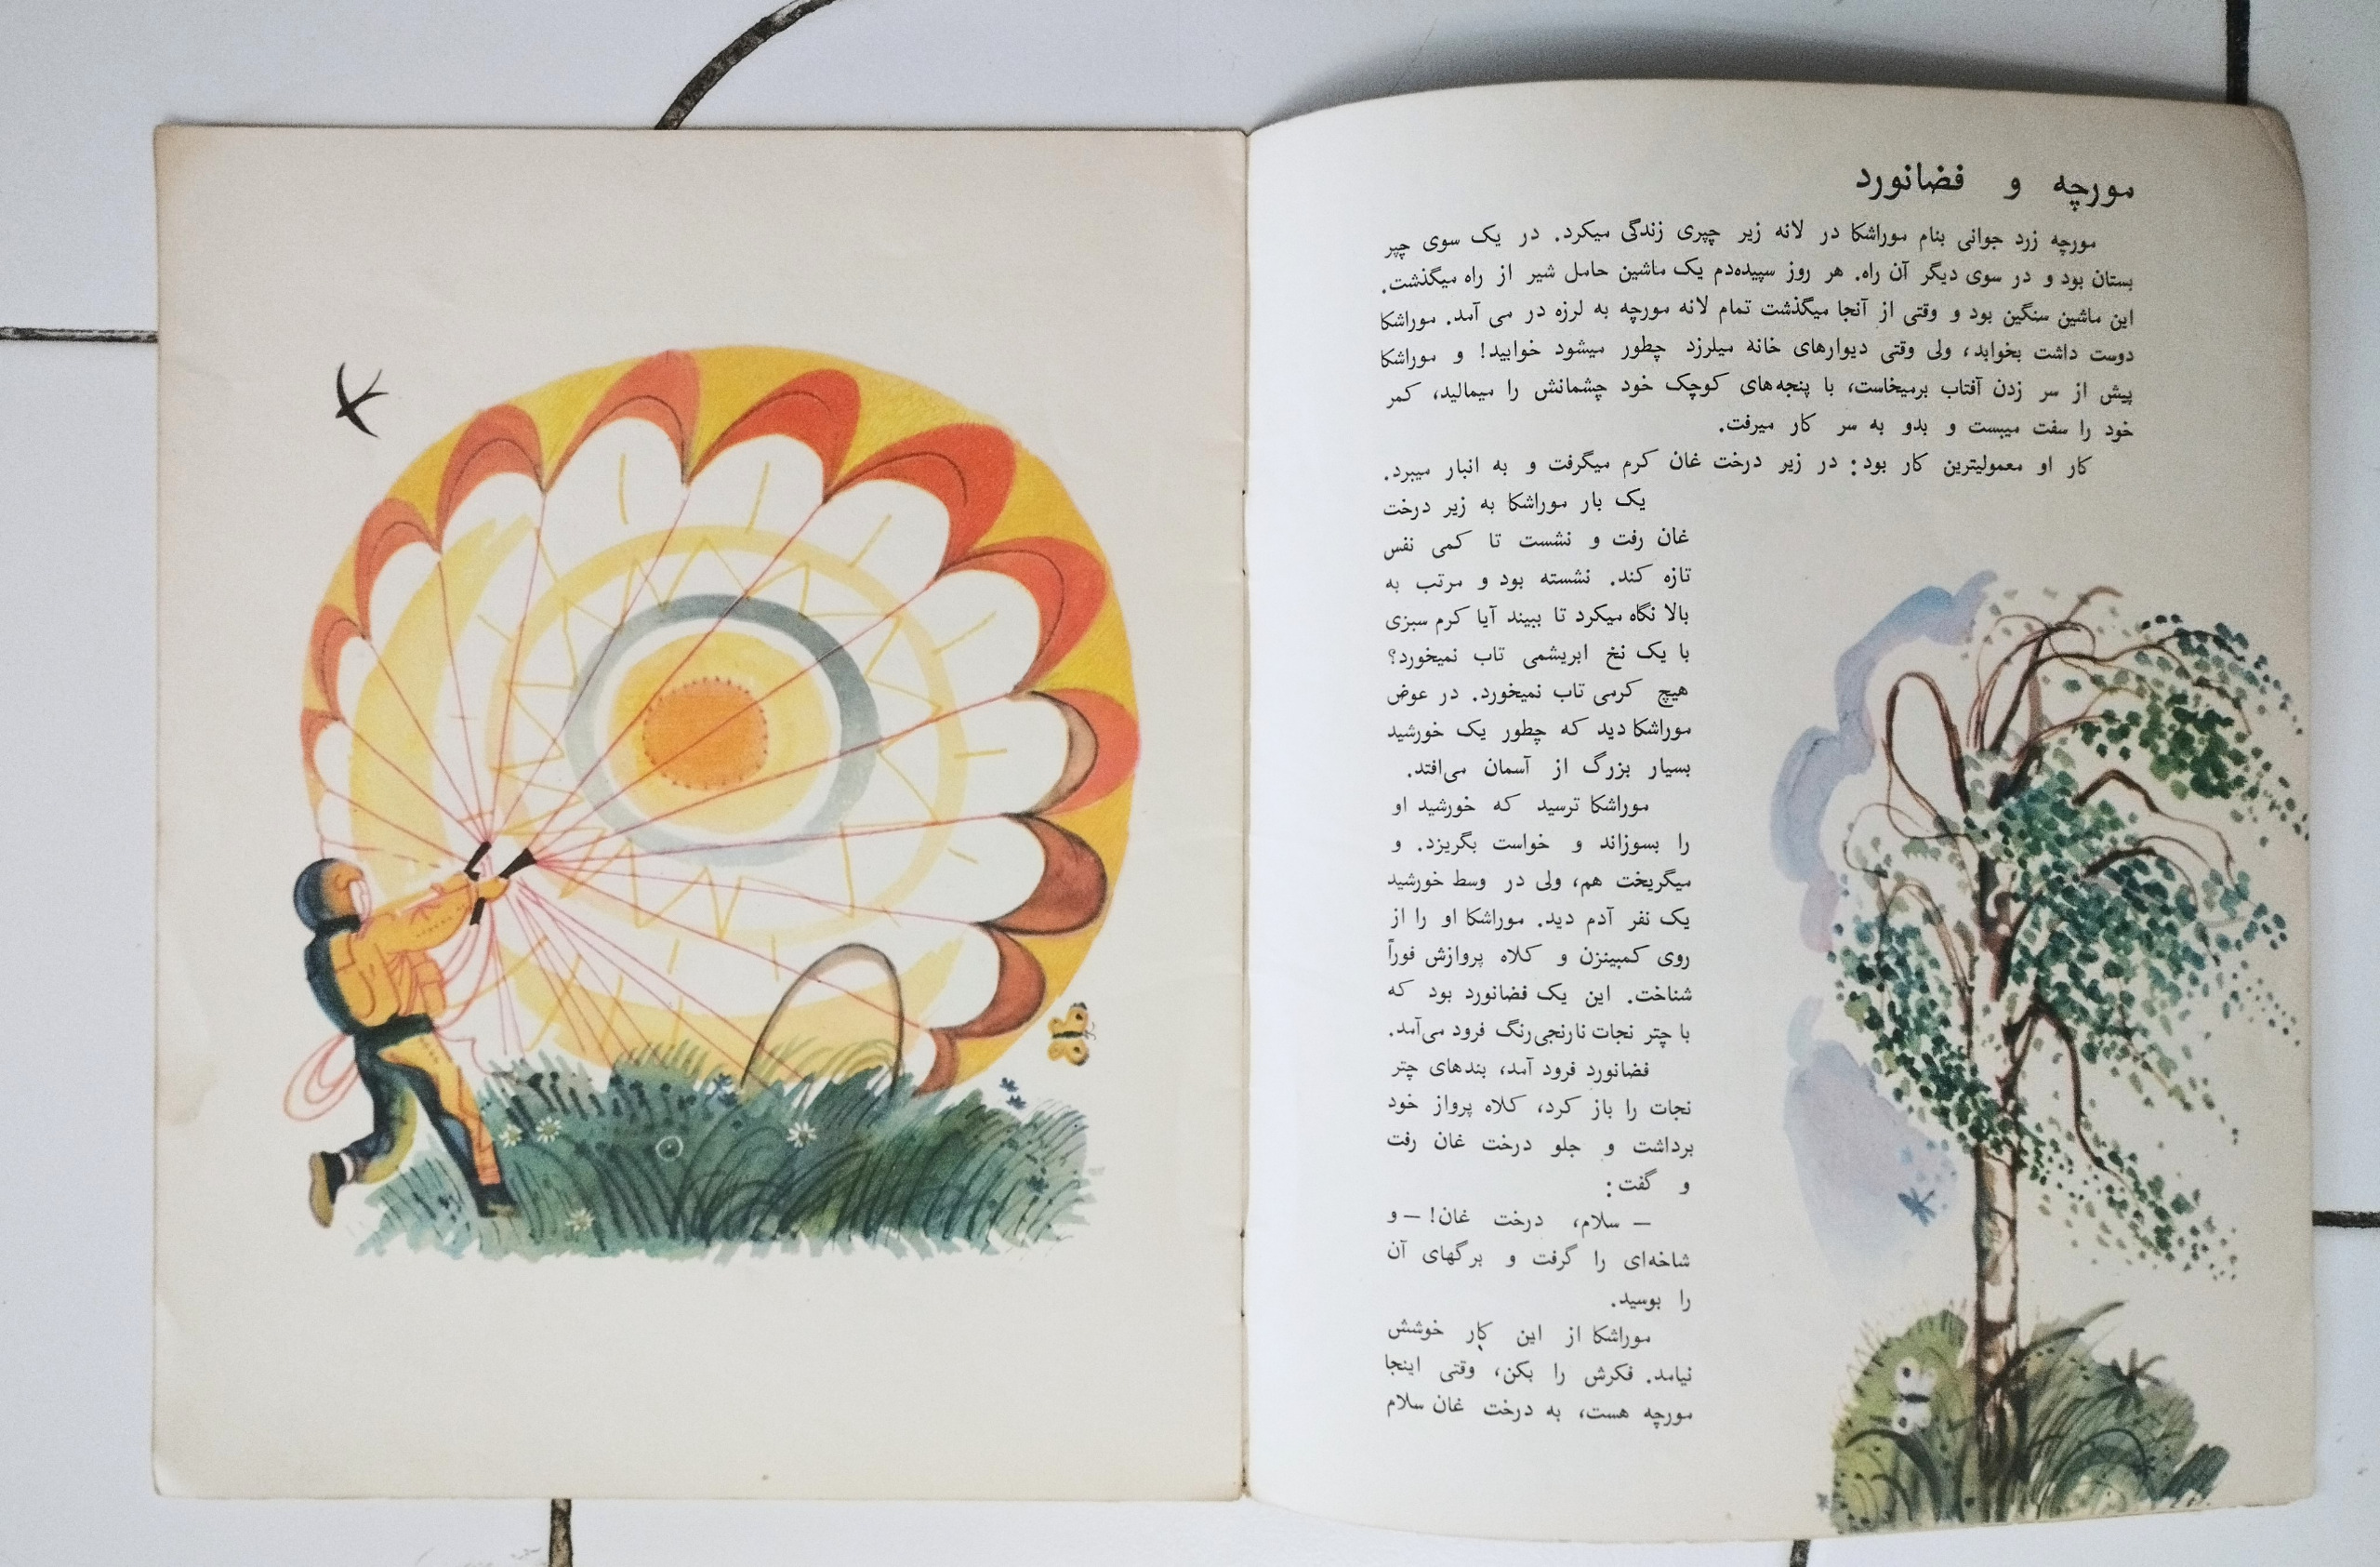 مورچه و فضانورد
مورچه زرد جوانی بنام موراشکا در لانه زیر چپری زندگی میکرد. در یک سوی چپر
بستان بود و در سوی دیگر آن راه. هر روز سپیده‌دم یک ماشین حامل شیر از راه میگذشت.
این ماشین سنگین بود و وقتی از آنجا میگذشت تمام لانه مورچه به لرزه در می آمد. موراشکا
دوست داشت بخوابد، ولی وقتی دیوارهای خانه میلرزد چطور میشود خوابید! و موراشکا
پیش از سر زدن آفتاب برمیخاست، با پنجه‌های کوچک خود چشمانش را میمالید، کمر
خود را سفت میبست و بدو به سر کار میرفت.
کار او معمولیترین کار بود: در زیر درخت غان کرم میگرفت و به انبار میبرد.
یک بار موراشکا به زیر درخت
غان رفت و نشست تا کمی نفس
تازه کند. نشسته بود و مرتب به
بالا نگاه میکرد تا ببیند آیا کرم سبزی
با یک نخ ابریشمی تاب نمیخورد؟
هیچ کرمی تاب نمیخورد. در عوض
موراشکا دید که چطور یک خورشید
بسیار بزرگ از آسمان می‌افتد.
موراشکا ترسید که خورشید او
را بسوزاند و خواست بگریزد. و
میگریخت هم، ولی در وسط خورشید
یک نفر آدم دید. موراشکا او را از
روی کمبینزن و کلاه پروازش فوراً
شناخت. این یک فضانورد بود که
با چتر نجات نارنجی‌رنگ فرود می‌آمد.
فضانورد فرود آمد، بندهای چتر
نجات را باز کرد، کلاه پرواز خود
برداشت و جلو درخت غان رفت
و گفت:
— سلام، درخت غان! — و
شاخه‌ای را گرفت و برگهای آن
را بوسید.
موراشکا از این کار خوشش
نیامد. فکرش را بکن، وقتی اینجا
مورچه هست، به درخت غان سلام